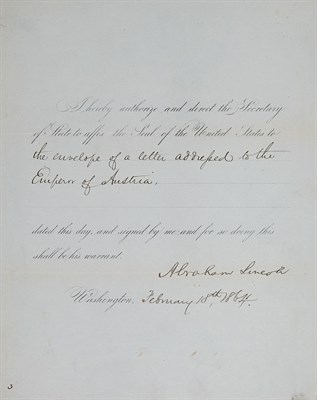 I hereby authorize and direct the Secretary
of State to affix the Seal of the United States to
the envelope of a letter addressed to the
Emperor of Austria.
dated this day, and signed by me; and for so doing this
shall be his warrant.
Abraham Lincoln
Washington, February 18th, 1864.